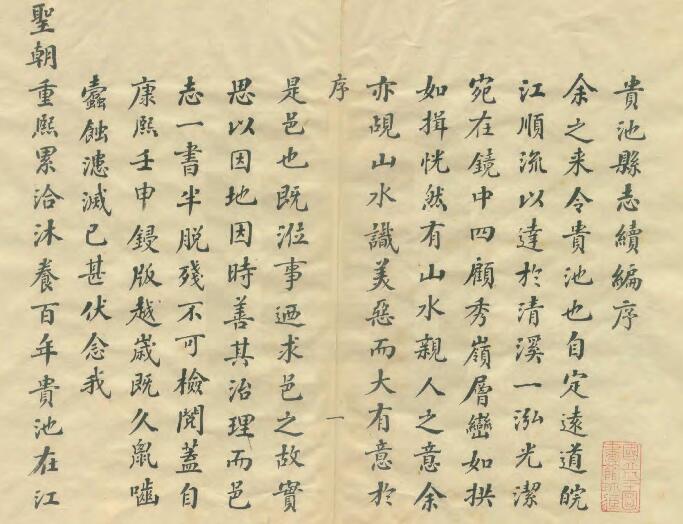 貴池縣志續編序
余之来令貴池也自定遠道皖
江順流以達於清溪一泓光潔
宛在鏡中四顧秀嶺層巒如拱
如揖恍然有山水親人之意余
亦覘山水識美惡而大有意於
序
一
是邑也既涖事迺求邑之故實
思以因地因時善其治理而邑
志一書半脱殘不可檢閱蓋自
康熙壬申鋟版越歲既久鼠嚙
蠹蝕漶滅已甚伏念我
聖朝重熙累洽沐養百年貴池在江